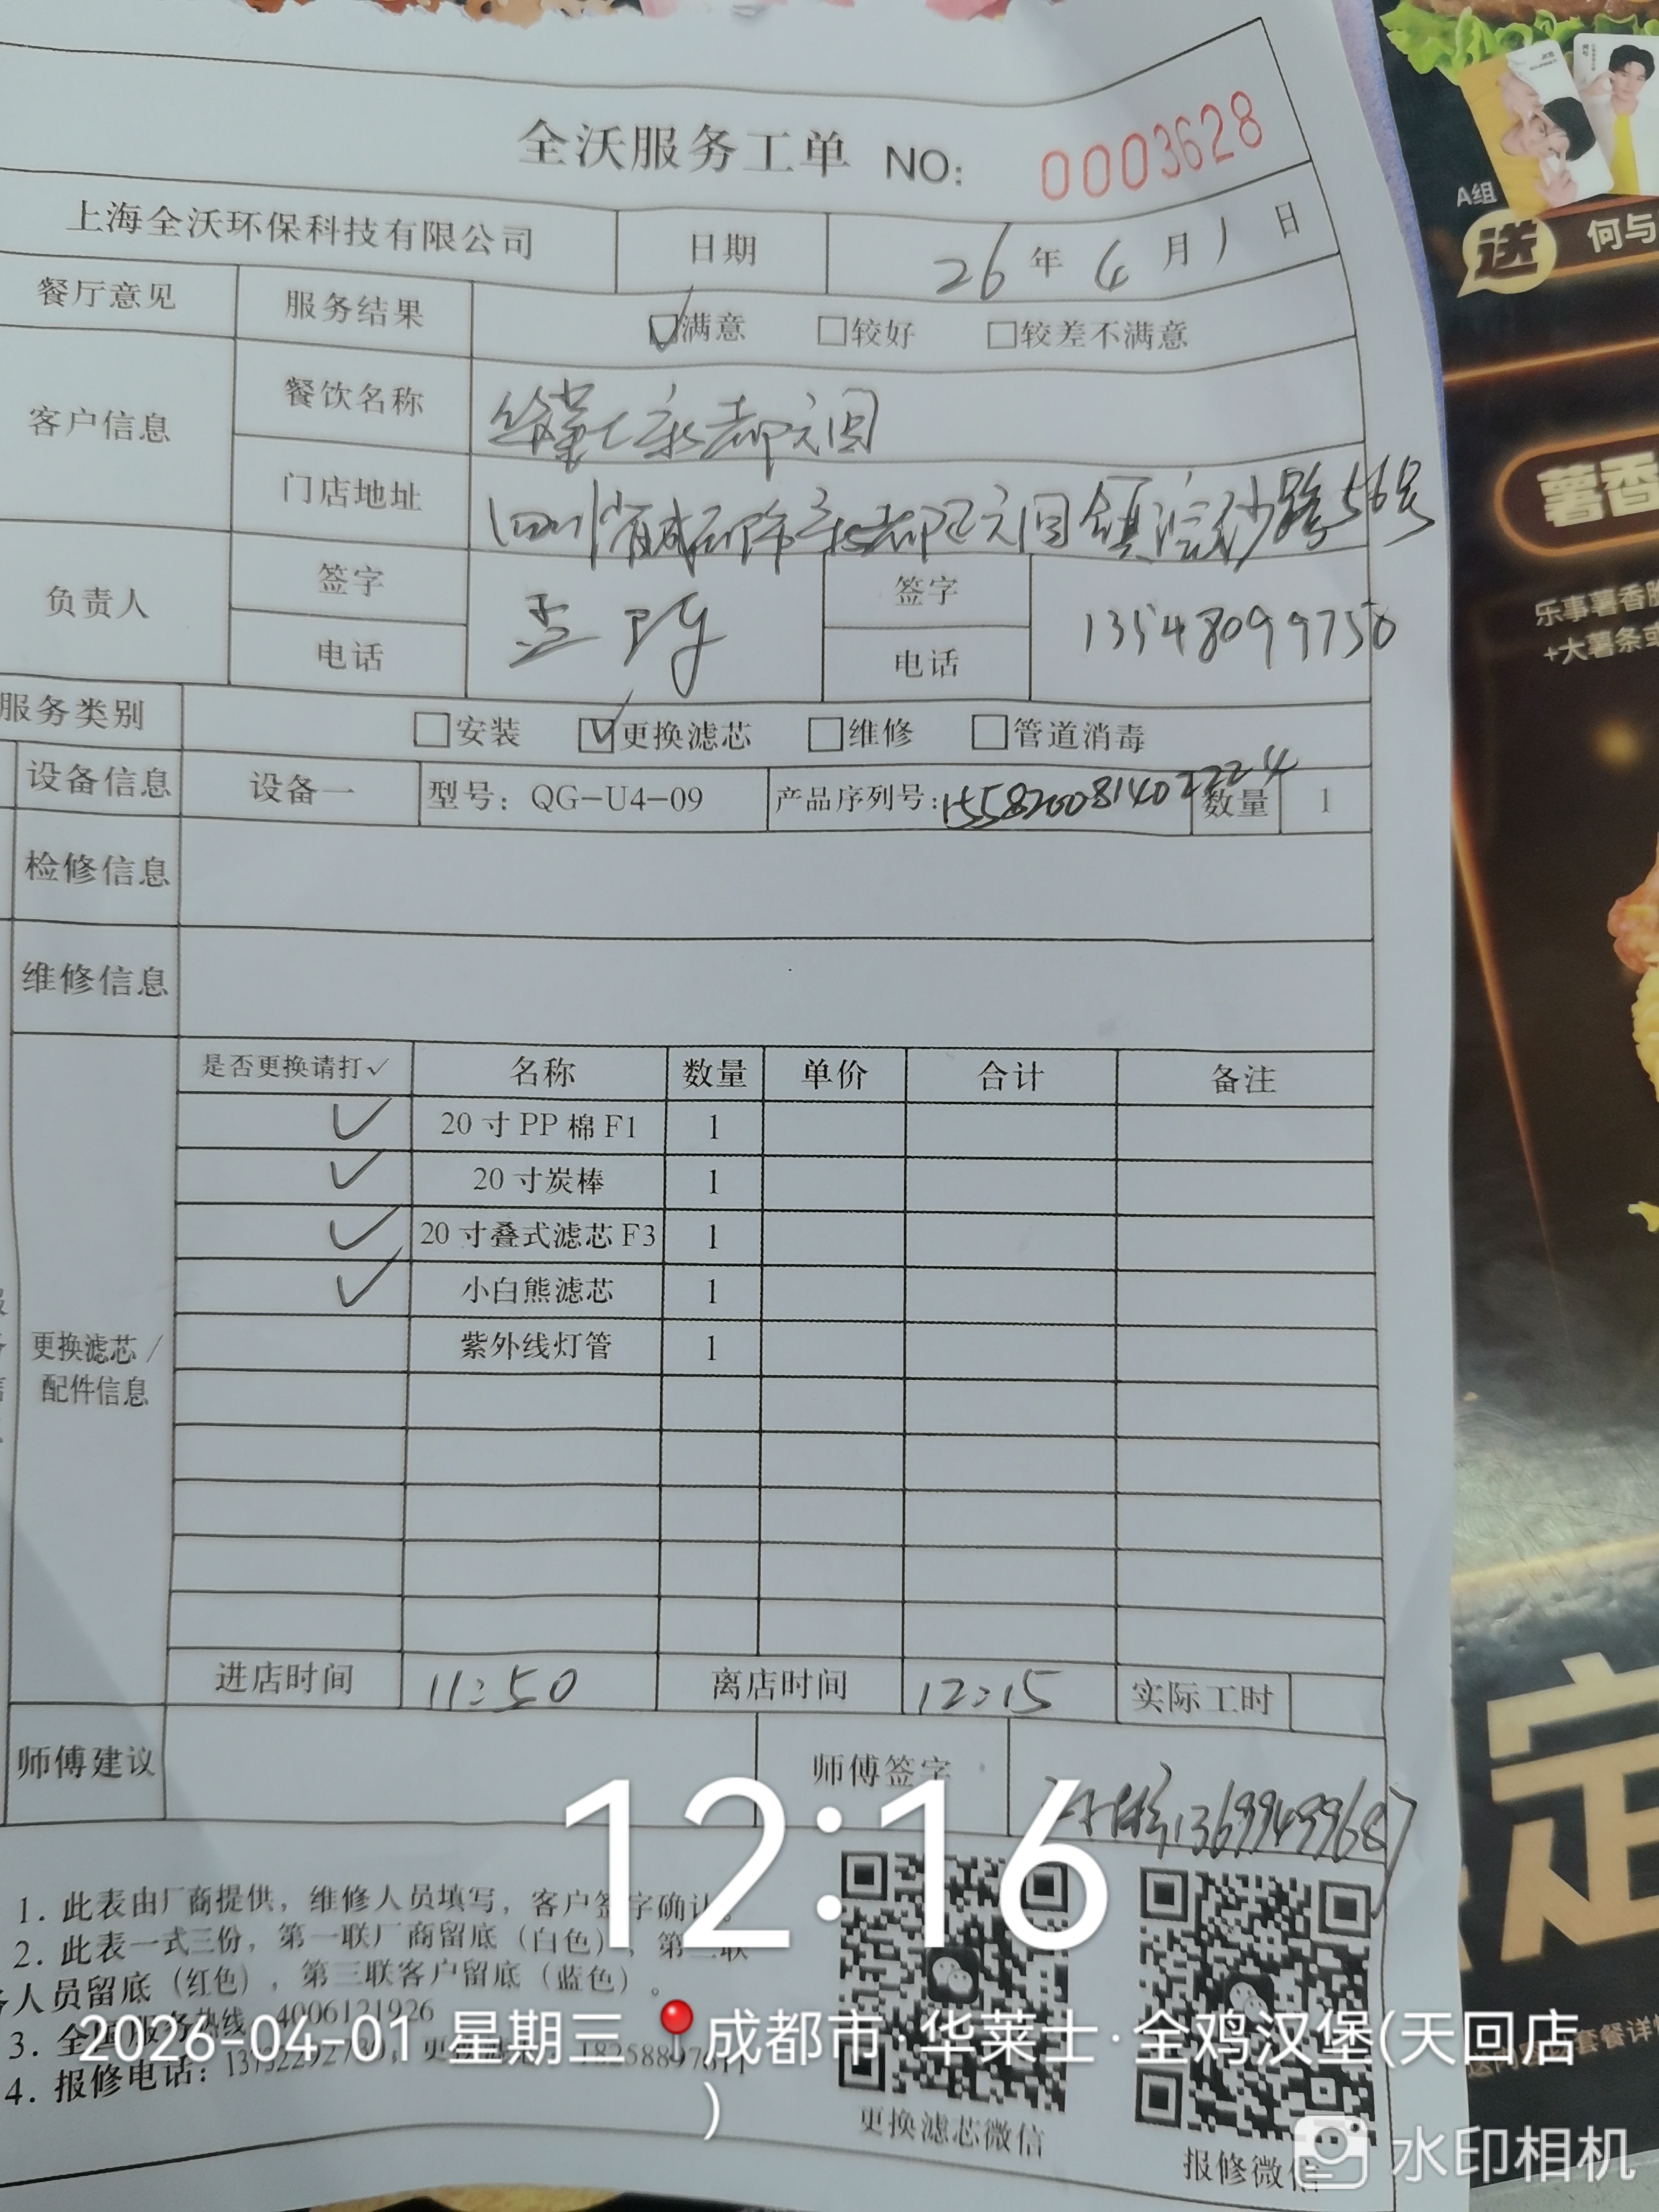 全沃服务工单 NO: 0003628
上海全沃环保科技有限公司 日期 26年4月1日
餐厅意见 服务结果 ☑满意 □较好 □较差不满意
客户信息 餐饮名称 华莱士新都天回
门店地址 四川省成都市新都区天回镇浣纱路56号
负责人 签字 签字
电话 电话 13548099750
服务类别 □安装 ☑更换滤芯 □维修 □管道消毒
设备信息 设备一 型号: QG-U4-09 产品序列号: 数量 1
检修信息
维修信息
是否更换请打✓ 名称 数量 单价 合计 备注
✓ 20寸PP棉F1 1
✓ 20寸炭棒 1
✓ 20寸叠式滤芯F3 1
✓ 小白熊滤芯 1
紫外线灯管 1
更换滤芯/
配件信息
进店时间 11:50 离店时间 12:15 实际工时
师傅建议 师傅签字 13699499687
12:16
1. 此表由厂商提供，维修人员填写，客户签字确认。
2. 此表一式三份，第一联厂商留底（白色），第二联
人员留底（红色），第三联客户留底（蓝色）。
3. 全国服务热线 4006121926
4. 报修电话:
2026-04-01 星期三 成都市·华莱士·全鸡汉堡(天回店
)
更换滤芯微信
报修微信
水印相机
A组
送
何与
薯香
乐事薯香脆
+大薯条或
定
套餐详情